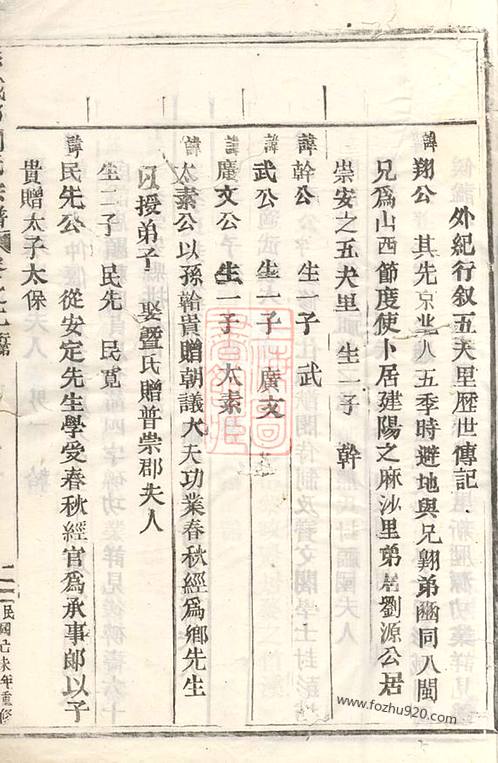 外紀行叙五夫里歷世傳記
諱翔公 其先京兆人五季時避地與兄翺弟豳同入閩
兄為山西節度使卜居建陽之麻沙里弟居劉源公居
崇安之五夫里 生一子 幹
諱幹公 生一子 武
諱武公 生一子 廣文
諱廣文公 生一子 太素
諱太素公以孫韐貴贈朝議大夫功業春秋經為鄉先生
以授弟子 娶暨氏贈普崇郡夫人
生二子 民先 民寬
諱民先公 從安定先生學受春秋經官為承事郎以子
貴贈太子太保
民國乙未年重修
www.fozhu920.com